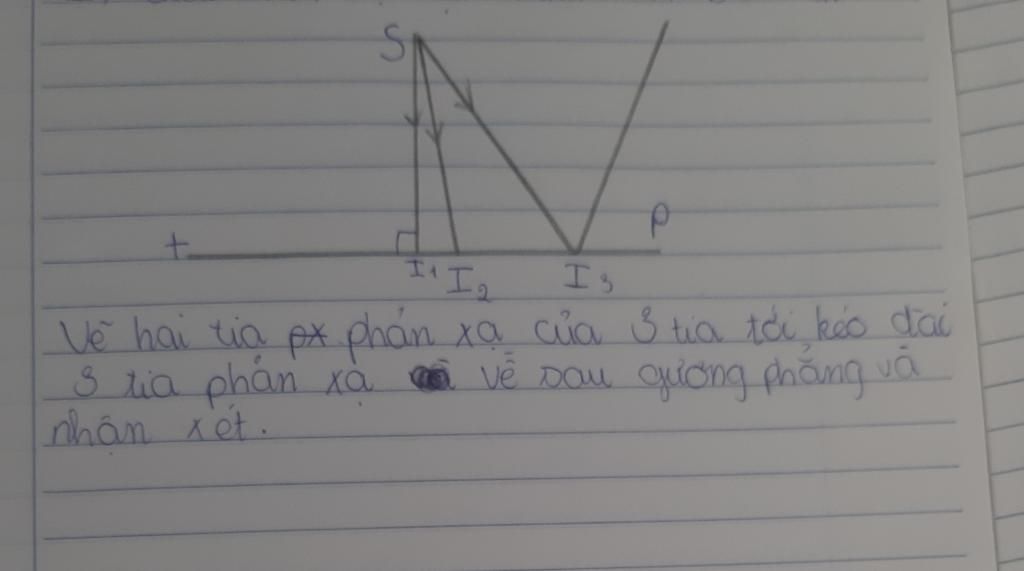 S
+
P
I1
I2
I3
Vẽ hai tia px phản xạ của 3 tia tới kéo dài
3 tia phản xạ về sau gương phẳng và
nhận xét.